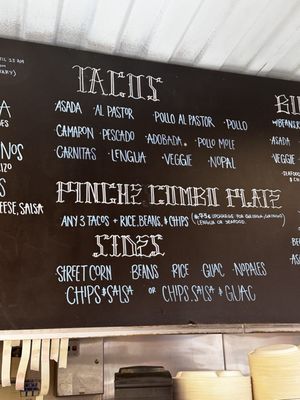 TACOS
ASADA · AL PASTOR · POLLO AL PASTOR · POLLO
· CAMARON · PESCADO · ADOBADA · POLLO MOLE
· CARNITAS · LENGUA · VEGGIE · NOPAL
PINCHE COMBO PLATE
ANY 3 TACOS + RICE, BEANS, & CHIPS
LENGUA OR SEAFOOD.
SIDES
STREET CORN · BEANS RICE · GUAC · NOPALES
CHIPS & SALSA OR CHIPS, SALSA & GUAC
NOS
CHEESE, SALSA
· ASADA
VEGGIE